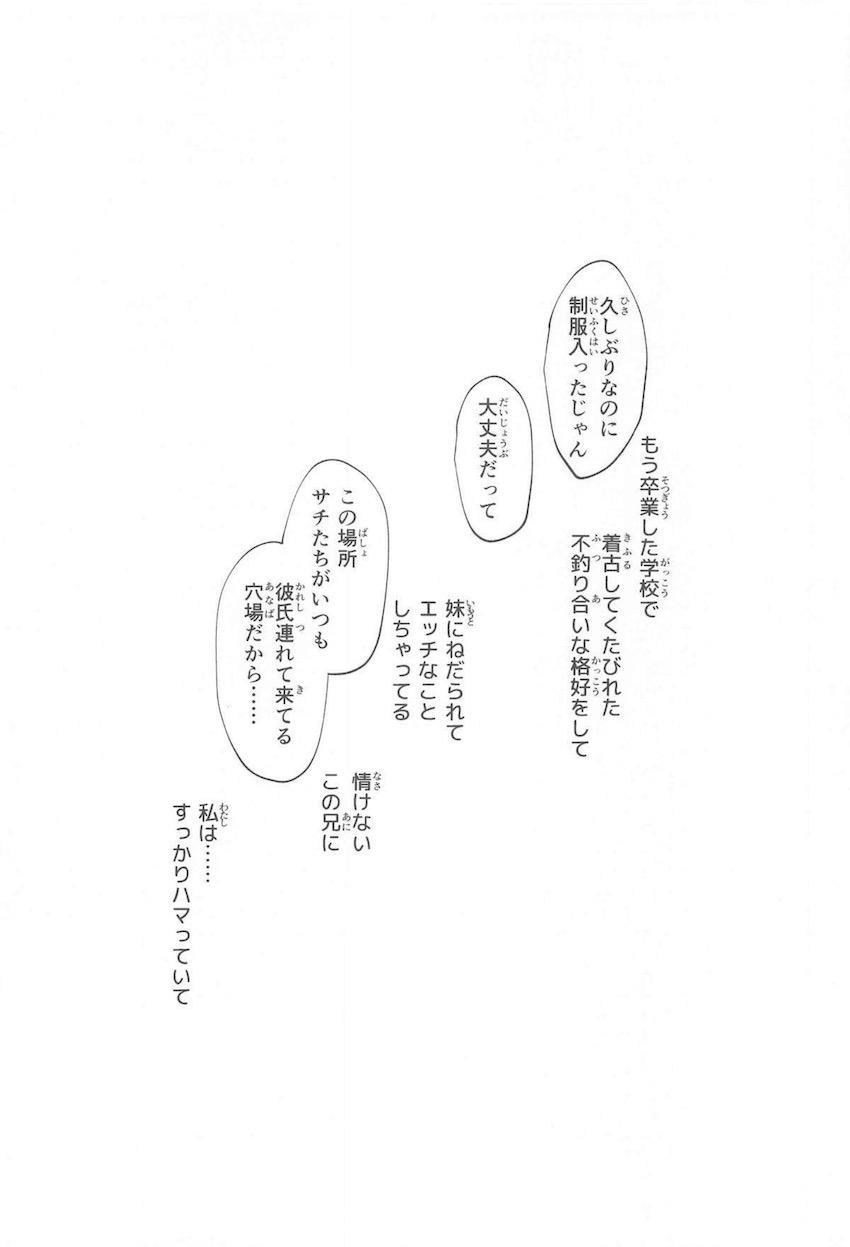 久しぶりなのに
制服入ったじゃん
もう卒業した学校で
着古してくたびれた
不釣り合いな格好をして
大丈夫だって
妹にねだられて
エッチなこと
しちゃってる
この場所
サチたちがいつも
彼氏連れて来てる
穴場だから……
情けない
この兄に
私は……
すっかりハマっていて